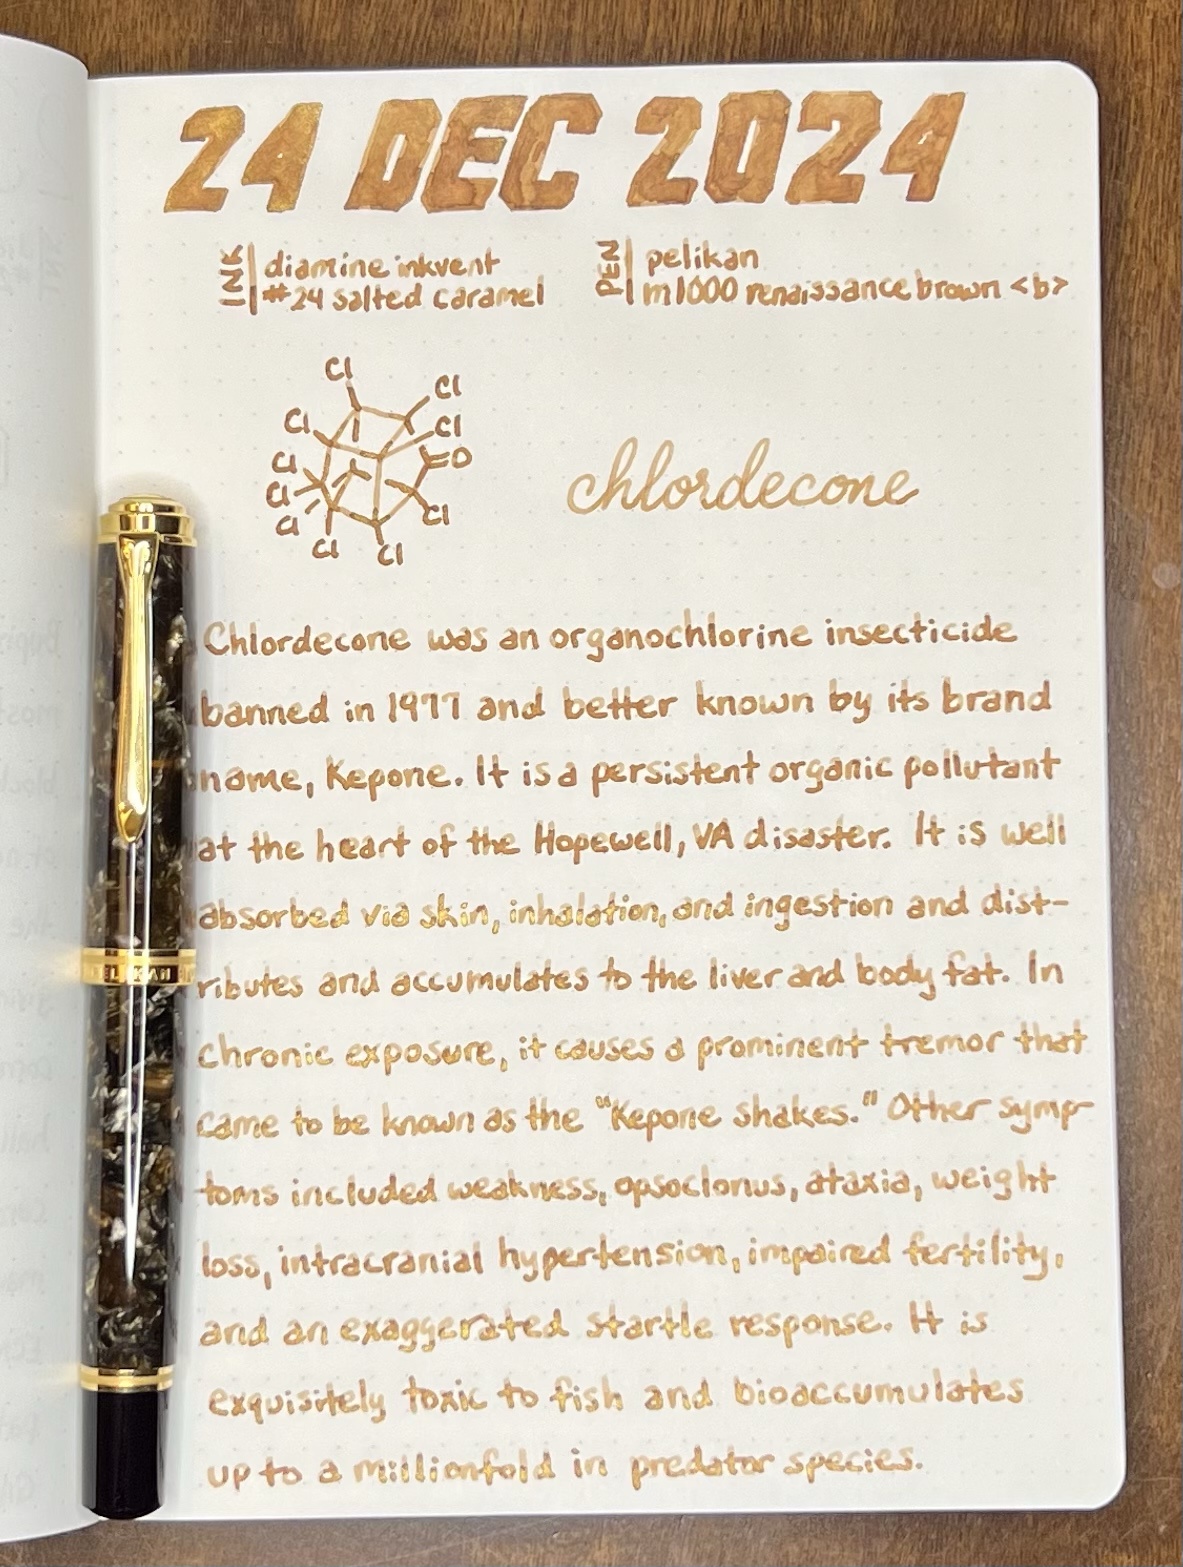 24 DEC 2024
INK diamine inkvent
#24 salted caramel
PEN pelikan
m1000 renaissance brown <b>
Cl
Cl
Cl
Cl
Cl
O
Cl
Cl
Cl
Cl
Cl
chlordecone
Chlordecone was an organochlorine insecticide
banned in 1977 and better known by its brand
name, Kepone. It is a persistent organic pollutant
at the heart of the Hopewell, VA disaster. It is well
absorbed via skin, inhalation, and ingestion and dist-
ributes and accumulates to the liver and body fat. In
chronic exposure, it causes a prominent tremor that
came to be known as the "Kepone shakes." Other symp-
toms included weakness, opsoclonus, ataxia, weight
loss, intracranial hypertension, impaired fertility,
and an exaggerated startle response. It is
exquisitely toxic to fish and bioaccumulates
up to a millionfold in predator species.
PELIKAN